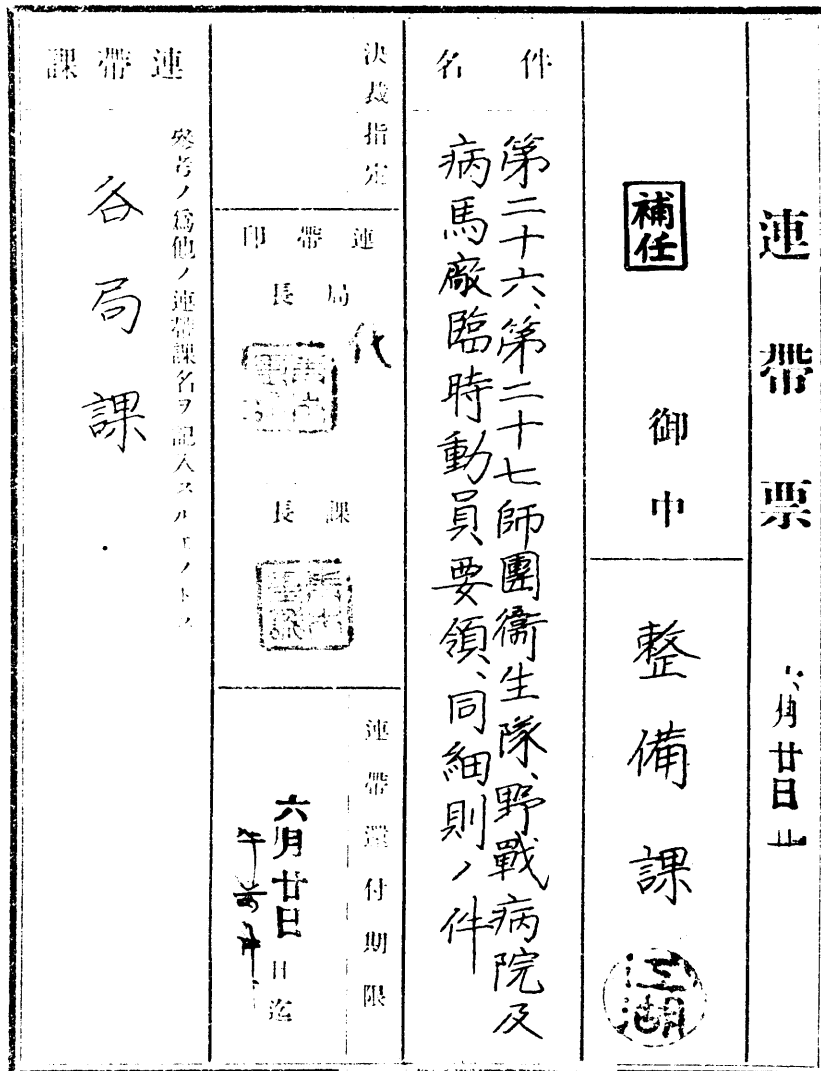 連帶票
六月廿日
補任
御中
整備課
件名
第二十六、第二十七師團衞生隊、野戰病院及
病馬廠臨時動員要領、同細則ノ件
決裁指定
連帶印
局長
代
課長
連帶還付期限
六月廿日
日迄
午前
連帶課
參考ノ爲他ノ連帶課名ヲ記入スルモノトス
各局課